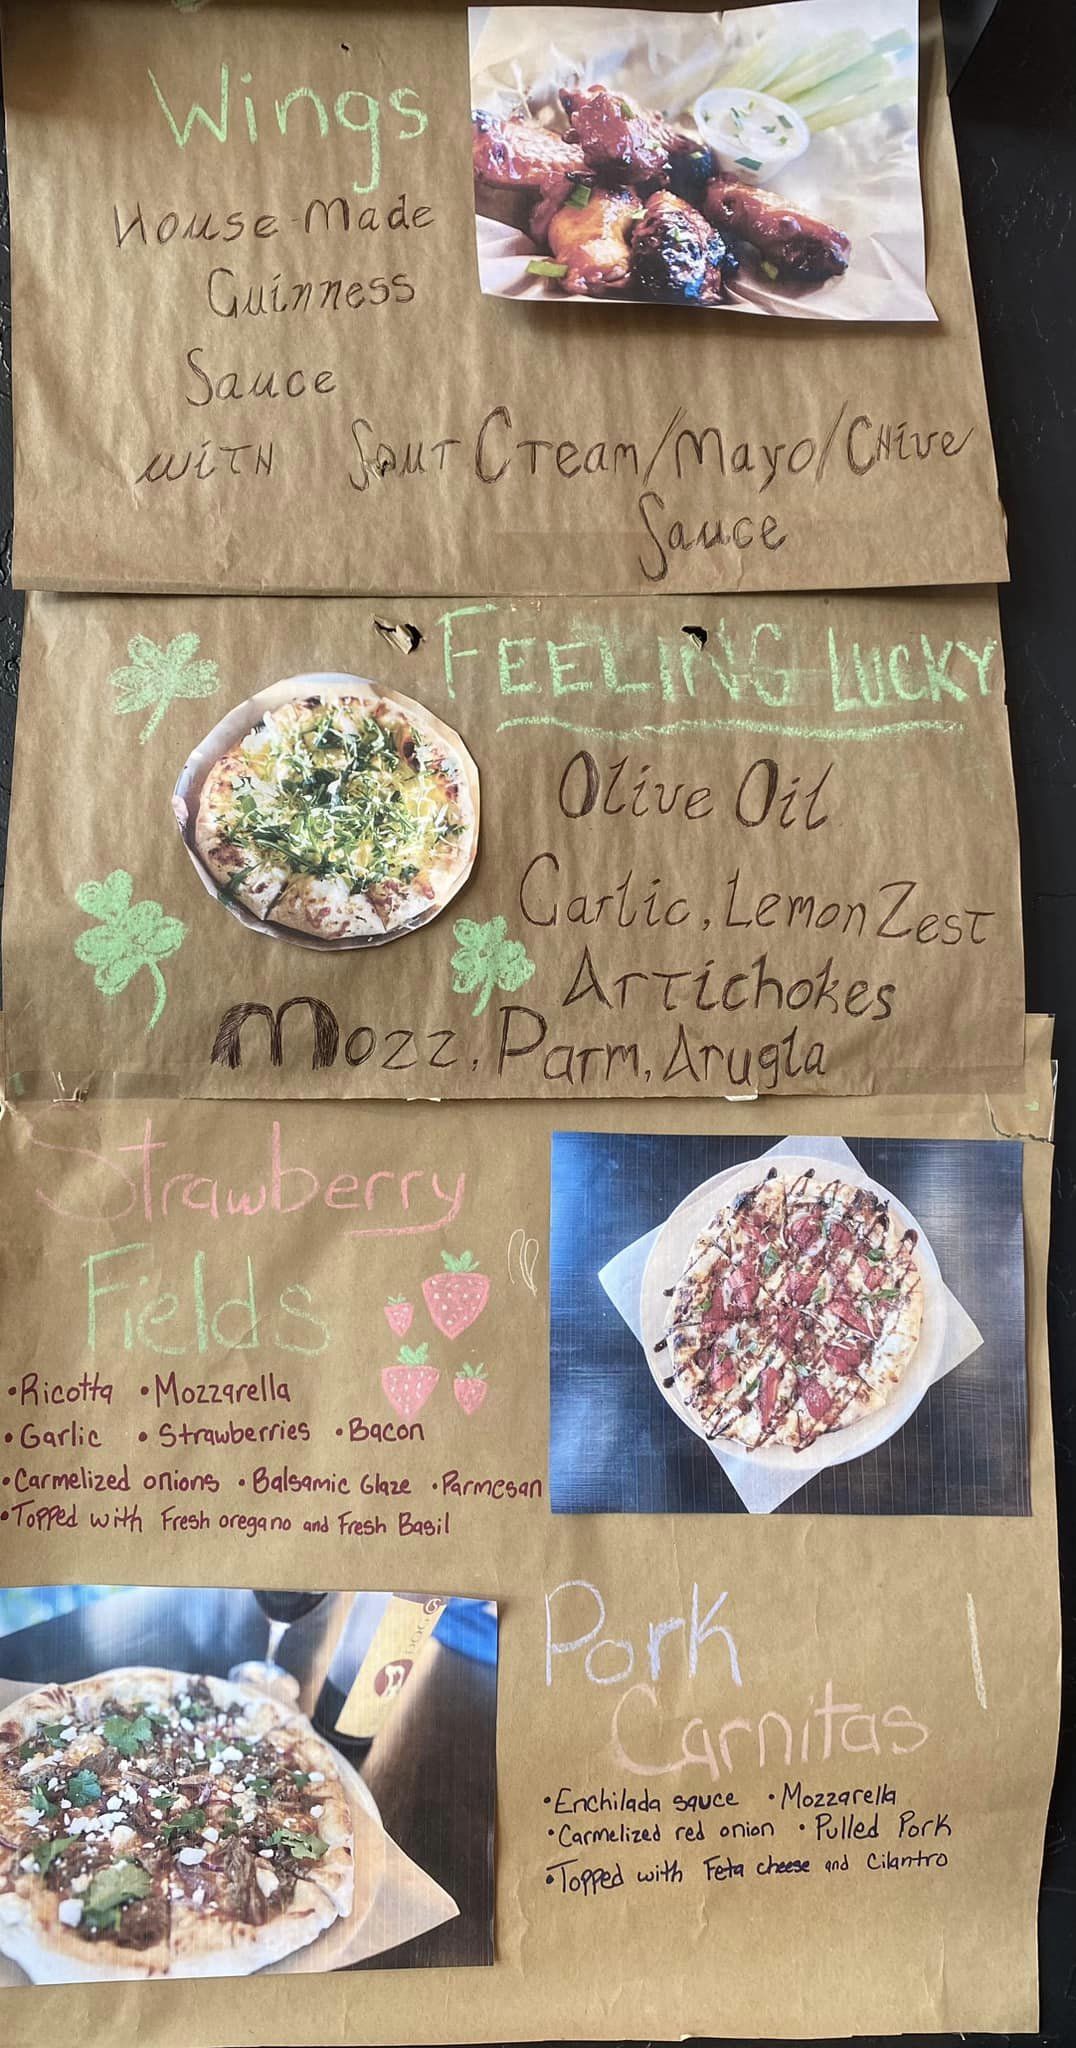 Wings
House-Made
Guinness
Sauce
with Sour Cream/Mayo/Chive
Sauce
FEELING LUCKY
Olive Oil
Garlic, Lemon Zest
Artichokes
Mozz, Parm, Arugla
Strawberry
Fields
•Ricotta •Mozzarella
•Garlic •Strawberries •Bacon
•Carmelized onions •Balsamic Glaze •Parmesan
•Topped with Fresh oregano and Fresh Basil
Pork
Carnitas
•Enchilada sauce •Mozzarella
•Carmelized red onion •Pulled Pork
•Topped with Feta cheese and Cilantro